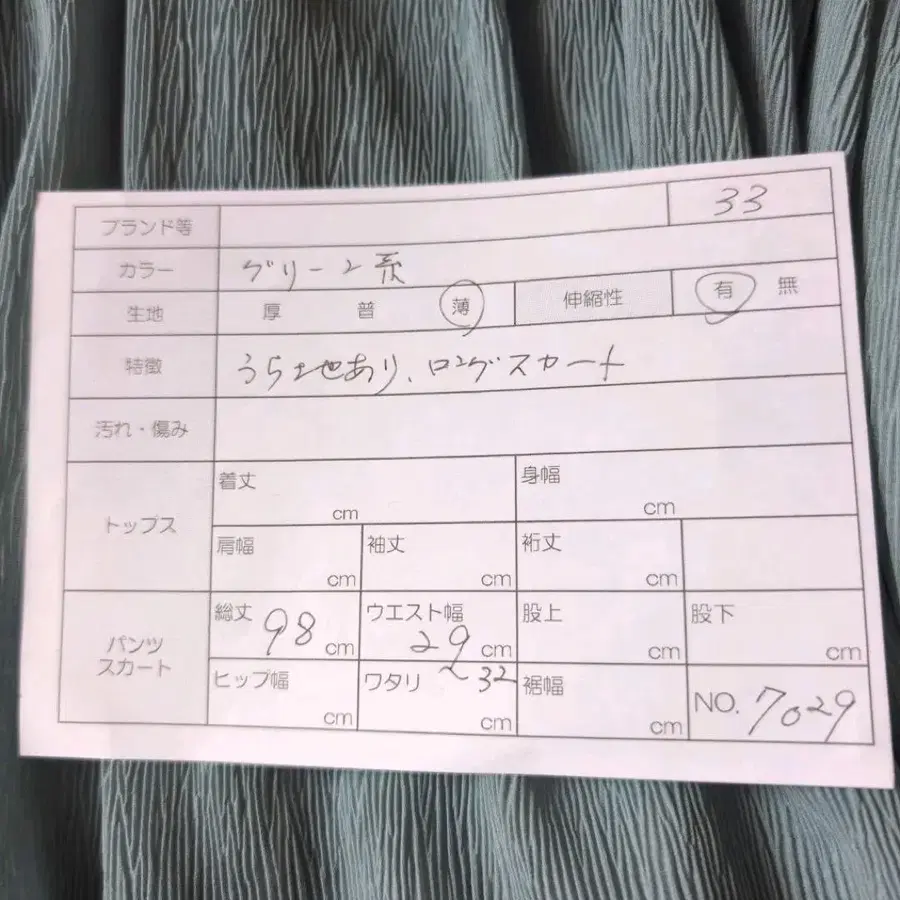 ブランド等 33
カラー グリーン系
生地 厚 普 薄 伸縮性 有 無
特徴 うら地あり、ロングスカート
汚れ・傷み
トップス
着丈 cm 身幅 cm
肩幅 cm 袖丈 cm 裄丈 cm
パンツ
スカート
総丈 98 cm ウエスト幅 29 cm 股上 cm 股下 cm
ヒップ幅 cm ワタリ ~32 cm 裾幅 cm NO. 7029